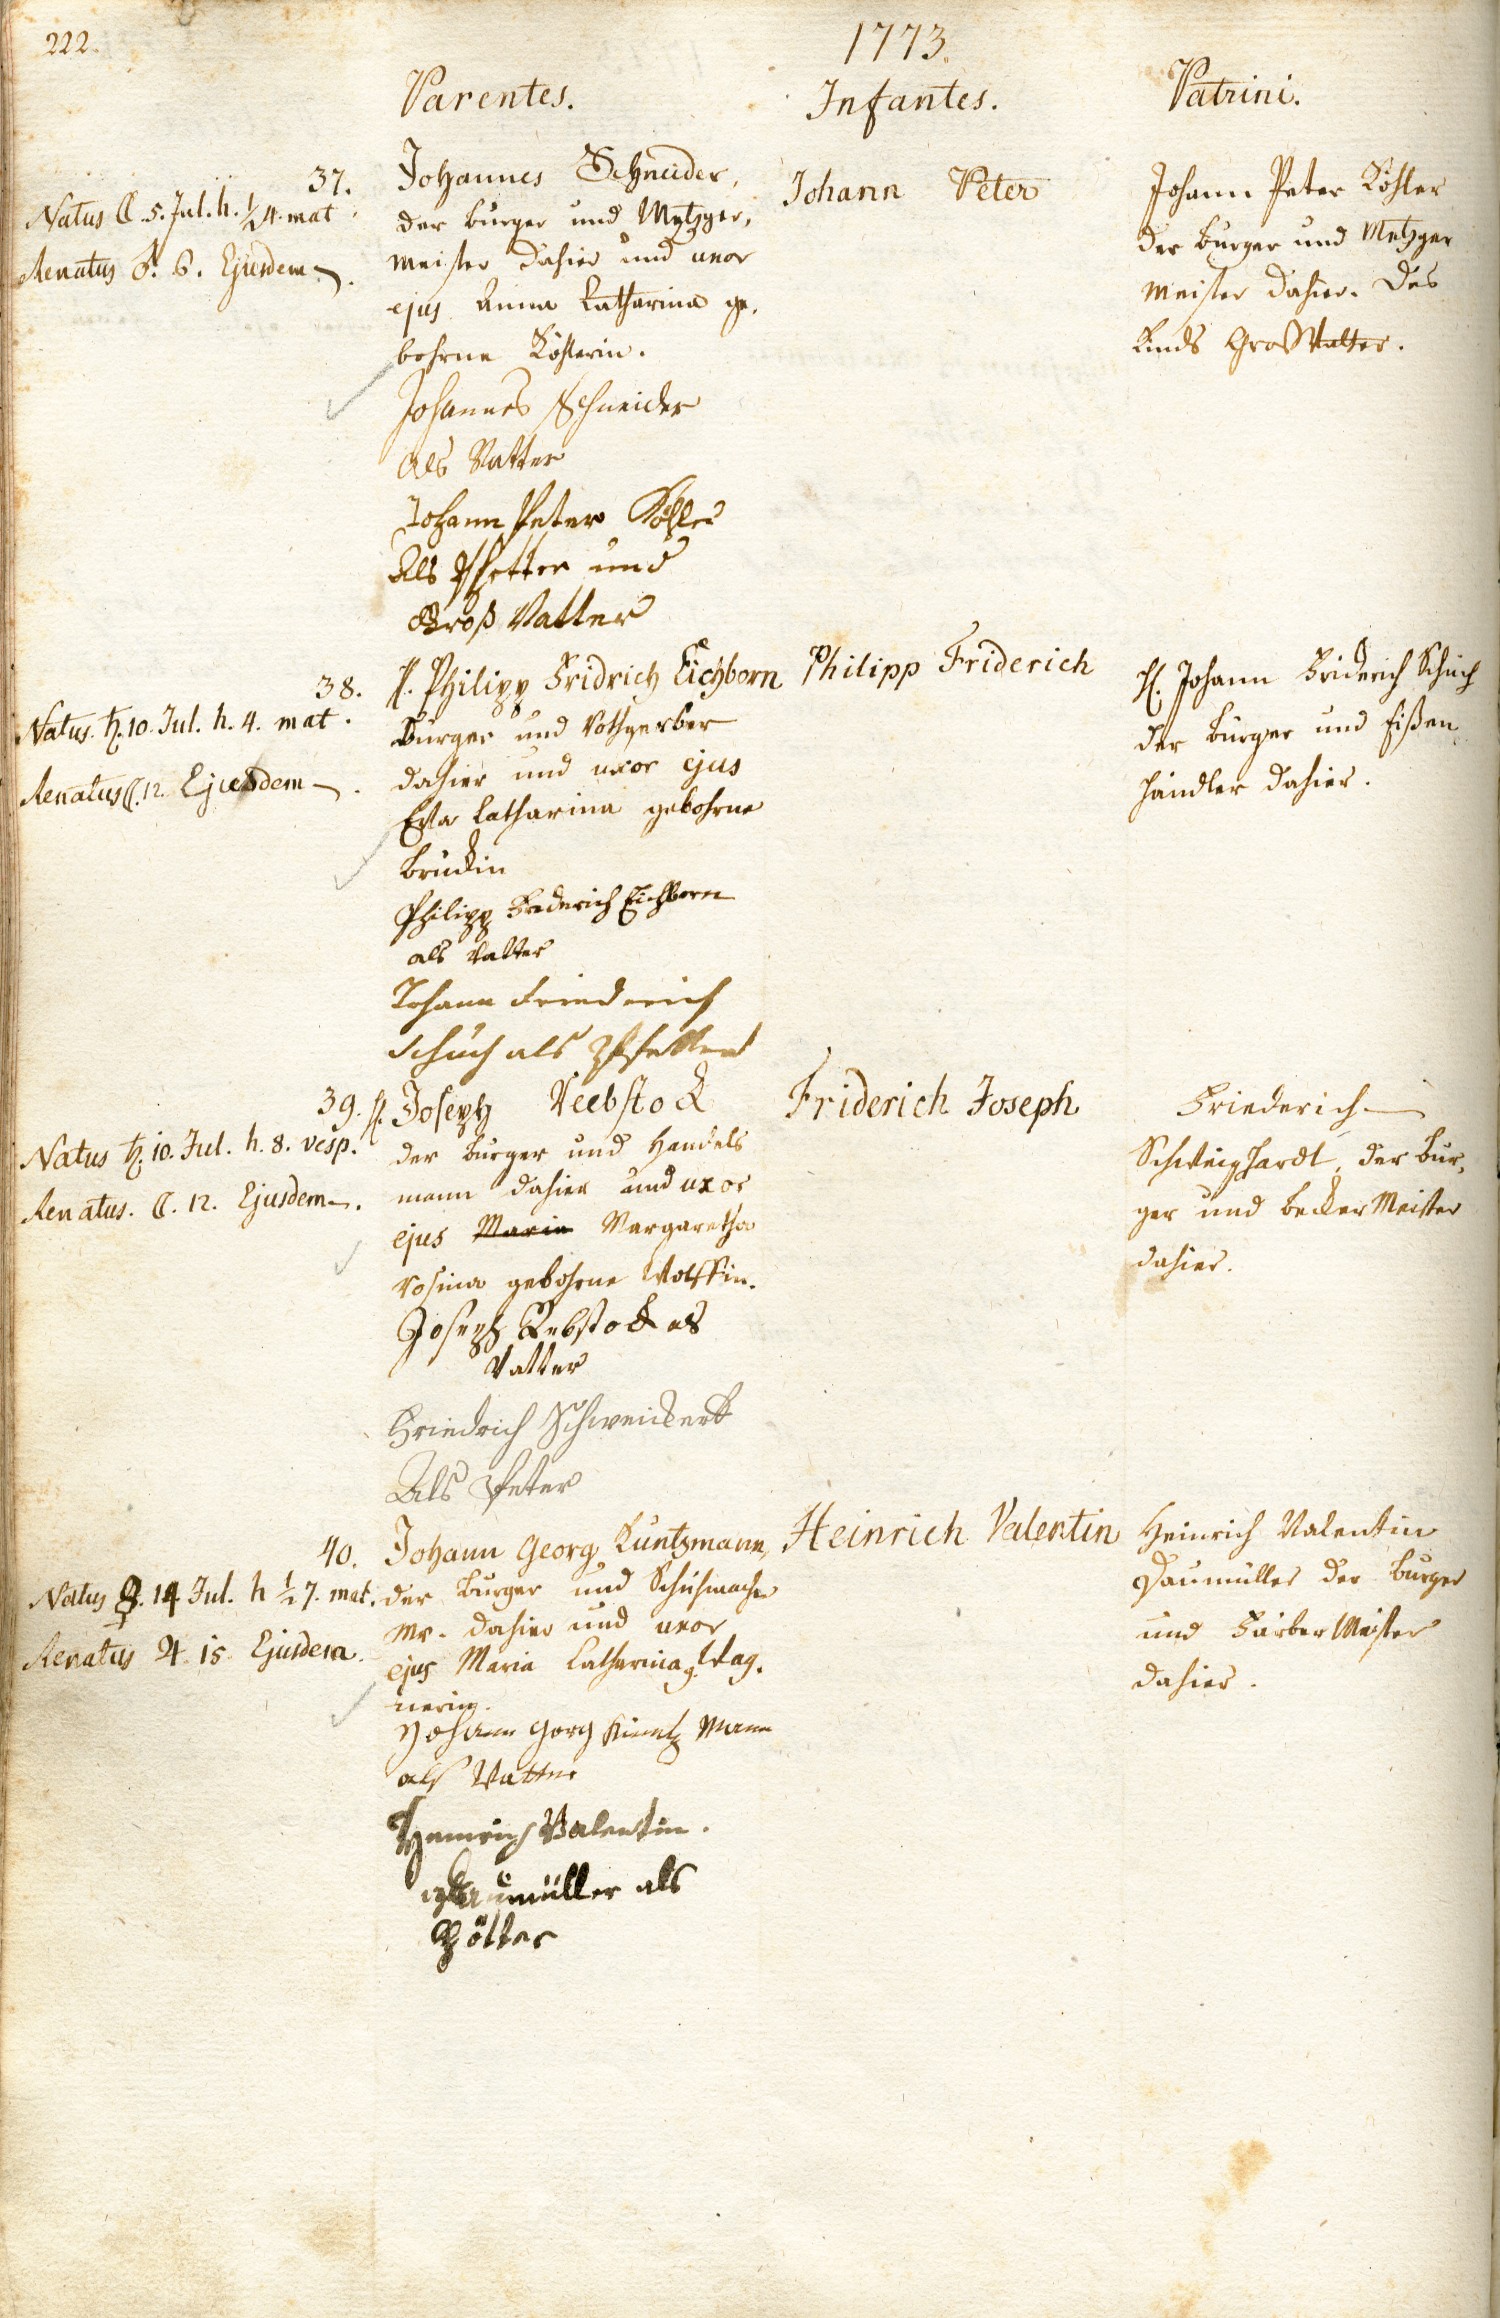 222.
1773.
Parentes.
Infantes.
Patrini.
37.
Natus ☾.5. Jul. h. ½ 4. mat.
Renatus ♂. 6. Ejusdem.
Johannes Schneider,
der burger und Metzger,
meister dahier und uxor
ejus Anna Catharina ge,
bohrne Köhlerin.
Johannes Schneider
als Vatter
Johann Peter Köhler
Als Pfetter und
Groß Vatter
Johann Peter
Johann Peter Köhler
der burger und Metzger
meister dahier. des
Kinds GroßVatter.
38.
Natus. ♄. 10. Jul. h. 4. mat.
Renatus ☾. 12. Ejusdem.
H. Philipp Fridrich Eichborn
Burger und Rothgerber
dahier und uxor ejus
Eva Catharina gebohrne
Brückin
Philipp Friderich Eichborn
als Vatter
Johann Friederich
Schuch als Pfetter
Philipp Friderich
H. Johann Friderich Schuch
der burger und Eißen
händler dahier.
39.
Natus ♄. 10. Jul. h. 8. vesp.
Renatus. ☾. 12. Ejusdem.
H. Joseph Reebstock
der burger und Handels
mann dahier und uxor
ejus Maria Margaretha
Rosina gebohrne Wolffin.
Joseph Rebstock als
Vatter
Friedrich Schweickert
Als Peter
Friderich Joseph
Friederich
Schweighardt, der bur,
ger und becker Meister
dahier.
40.
Natus ☿. 14 Jul. h ½ 7. mat.
Renatus ♃ 15 Ejusdem.
Johann Georg Kuntzmann,
der Burger und Schuhmacher
Mr. dahier und uxor
ejus Maria Catharina g. Wag,
nerin.
Johann Gorg Kuntz Mann
als Vatter
Heinrich Valentin.
Daumüller als
Pötter
Heinrich Valentin
Heinrich Valentin
Daumüller der Burger
und Färber Meister
dahier.